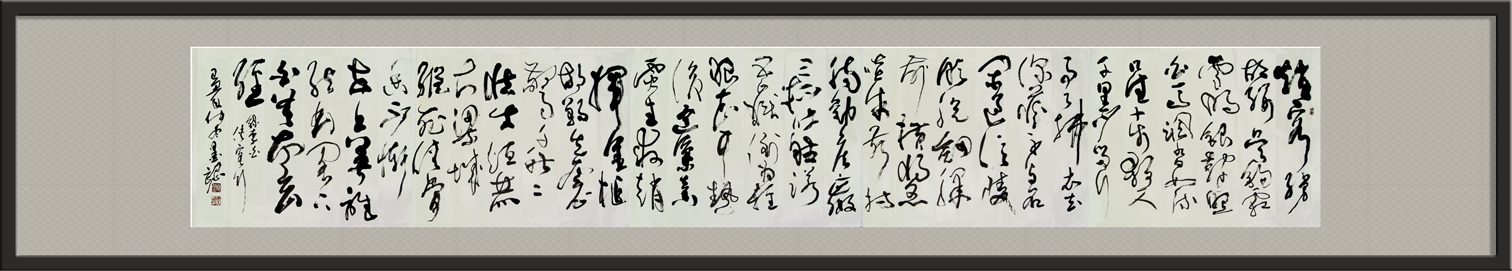 趙客縵
胡纓吳鉤霜
雪明銀鞍照
白馬颯沓如流
星十步殺一人
千里不留行
事了拂衣去
深藏身與名
閑過信陵
飲脫劍膝
前橫將炙
啖朱亥持
觴勸侯嬴
三杯吐然諾
五嶽倒為輕
眼花耳熱
後意氣素
霓生救趙
揮金槌
邯鄲先震
驚千秋二
壯士烜赫
大梁城
縱死俠骨
香不慚
世上英誰
能書閣下
白首太玄
經
錄李白
俠客行